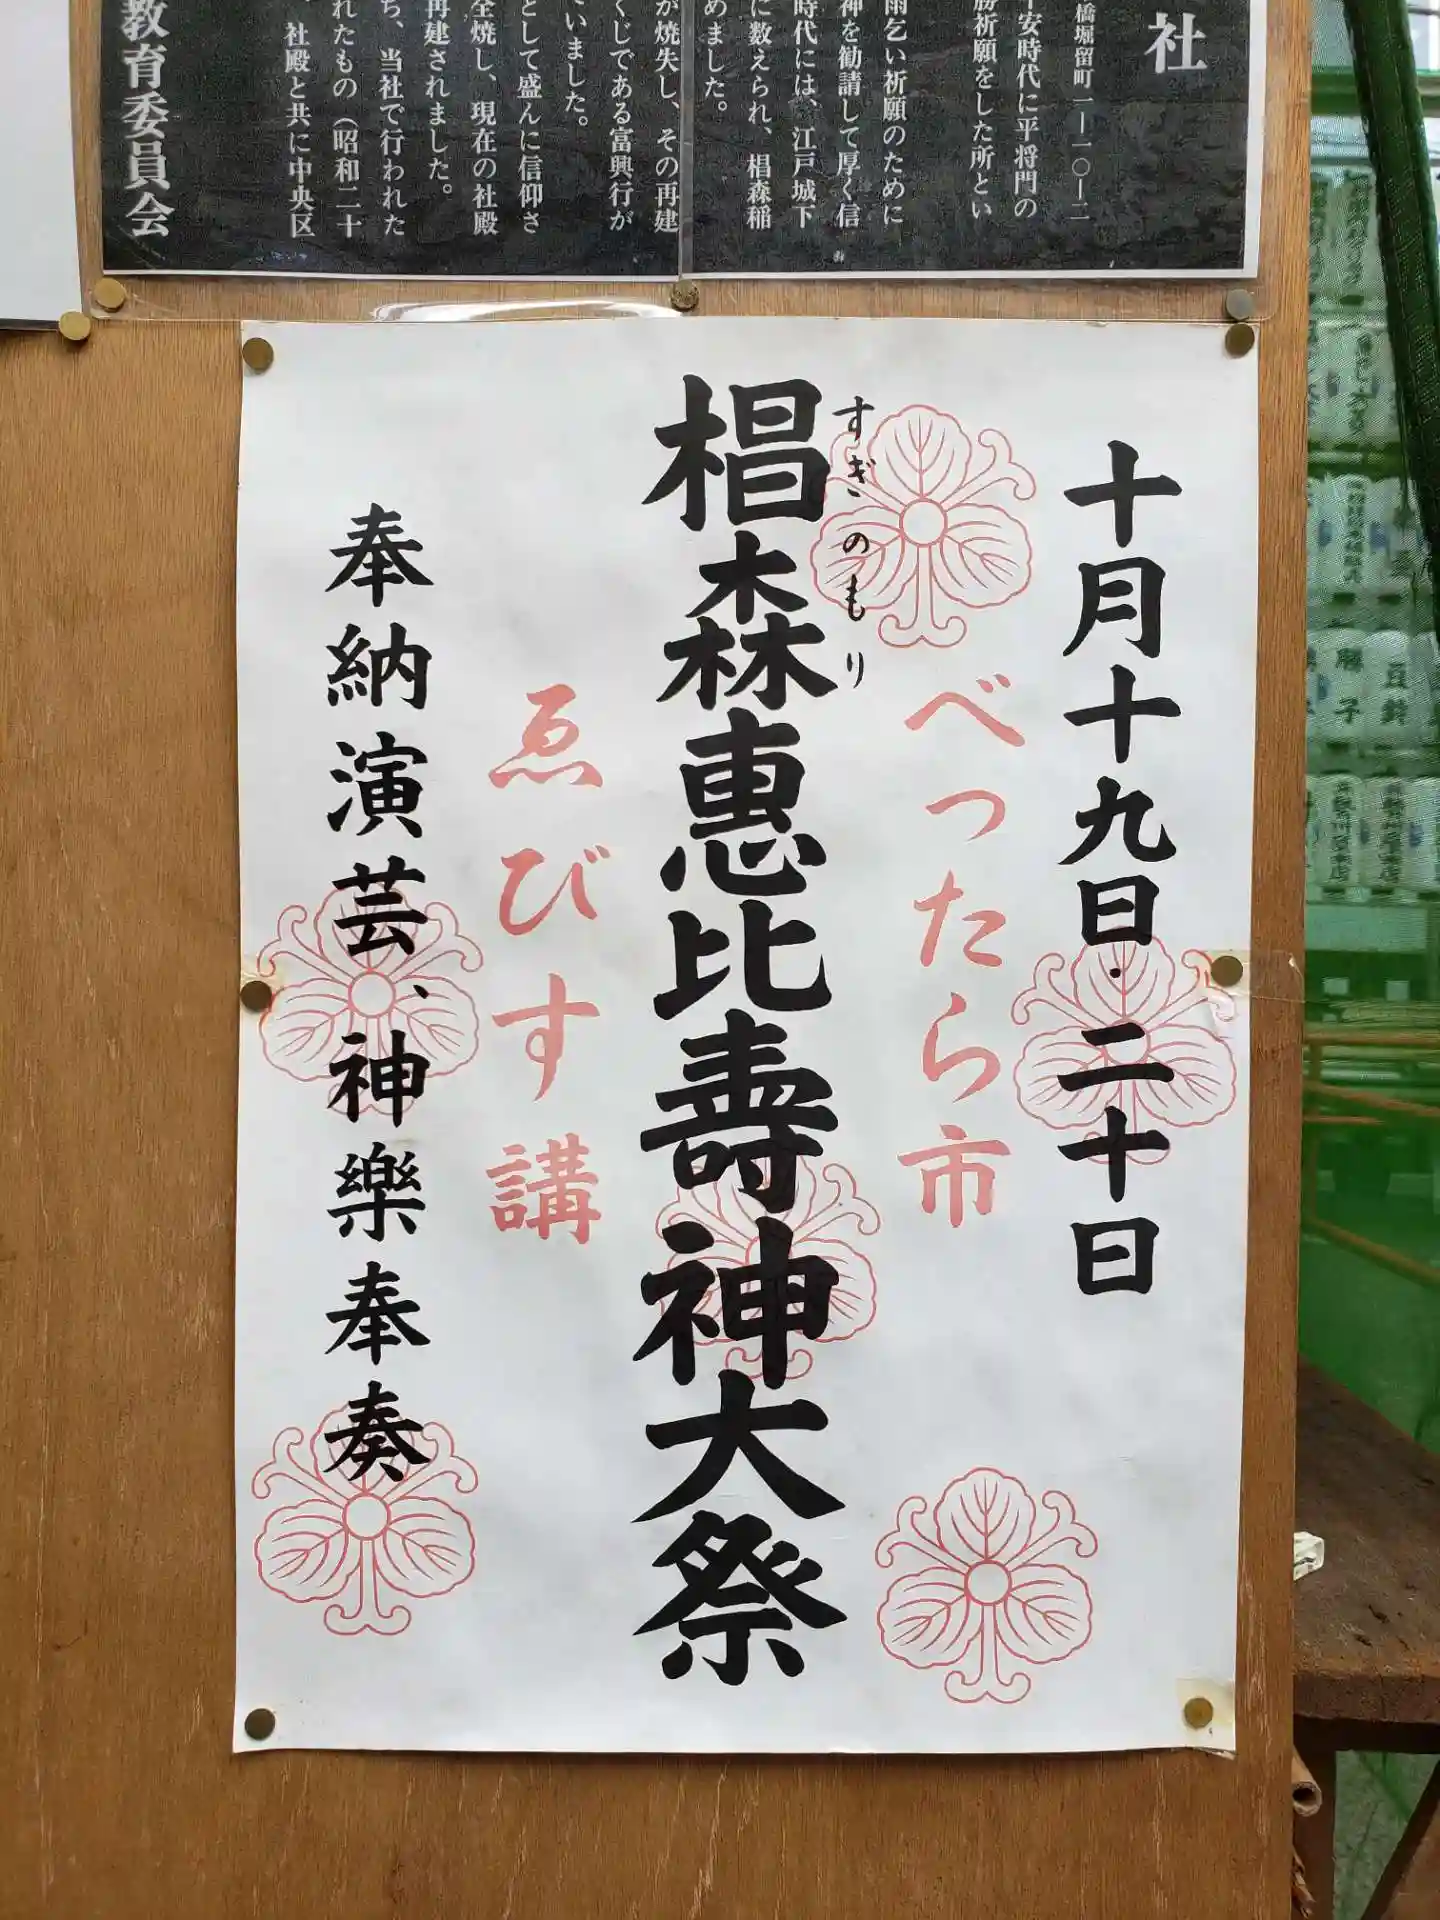 社
橋堀留町一ー一〇ー二
安時代に平将門の
勝祈願をした所とい
雨乞い祈願のために
神を勧請して厚く信
時代には、江戸城下
に数えられ、椙森稲
めました。
が焼失し、その再建
くじである富興行が
いました。
として盛んに信仰さ
全焼し、現在の社殿
再建されました。
ち、当社で行われた
れたもの（昭和二十
社殿と共に中央区
教育委員会
十月十九日・二十日
べったら市
すぎのもり
椙森惠比壽神大祭
ゑびす講
奉納演芸、神樂奉奏